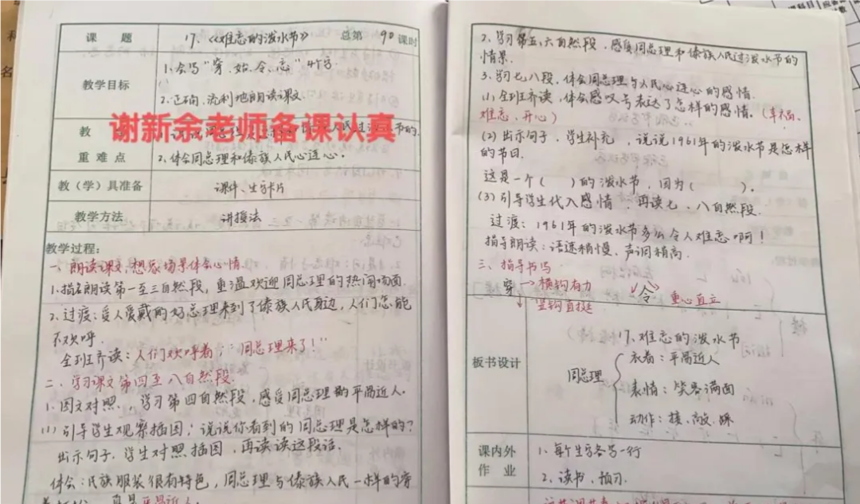 课 题
17、《难忘的泼水节》 总第 90 课时
教学目标
1、会写“穿、令、忘”
2、正确、流利地朗读课文。
谢新余老师备课认真
重难点
2、体会周总理和傣族人民心连心。
教(学)具准备
课件、生字卡片
教学方法
讲授法
教学过程:
一、朗读课文,想象场景体会心情
1、指名朗读第一至三自然段,重温欢迎周总理的热闹场面.
2、过渡:受人爱戴的好总理来到了傣族人民身边,人们怎能
不欢呼.
全班齐读:人们欢呼着:“周总理来了!”
二、学习课文第四至八自然段.
1、图文对照,学习第四自然段,感受周总理的平易近人.
(1)引导学生观察插图:说说你看到的周总理是怎样的?
出示句子.学生对照插图,再读读这段话.
体会:民族服装很有特色,周总理与傣族人民一样的穿
2、学习第五、六自然段,感受周总理和傣族人民过泼水节的
情景.
3、学习七八段,体会周总理与人民心连心的感情.
(1)全班齐读,体会感叹号表达了怎样的感情。(幸福、
难忘、开心)
(2)出示句子,学生补充,说说1961年的泼水节是怎样
的节日.
这是一个( )的泼水节,因为( )。
(3)引导学生代入感情,再读七、八自然段.
过渡:1961年的泼水节多么令人难忘啊!
指导朗读:语速稍慢、声调稍高.
三、指导书写
穿→横钩有力 令 重心直立
竖钩直挺
板书设计
17、难忘的泼水节
周总理
衣着:平易近人
表情:笑容满面
动作:接、敲、踩
课内外
作业
1、每个生字各写一行
2、读书、预习.